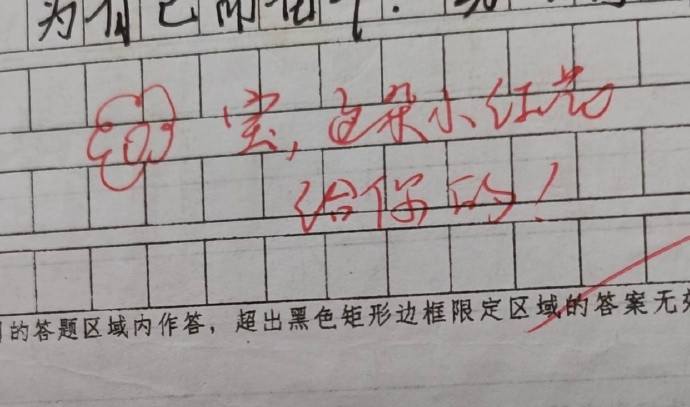 为自己
宝,这朵小红花
给你的!
的答题区域内作答,超出黑色矩形边框限定区域的答案无效